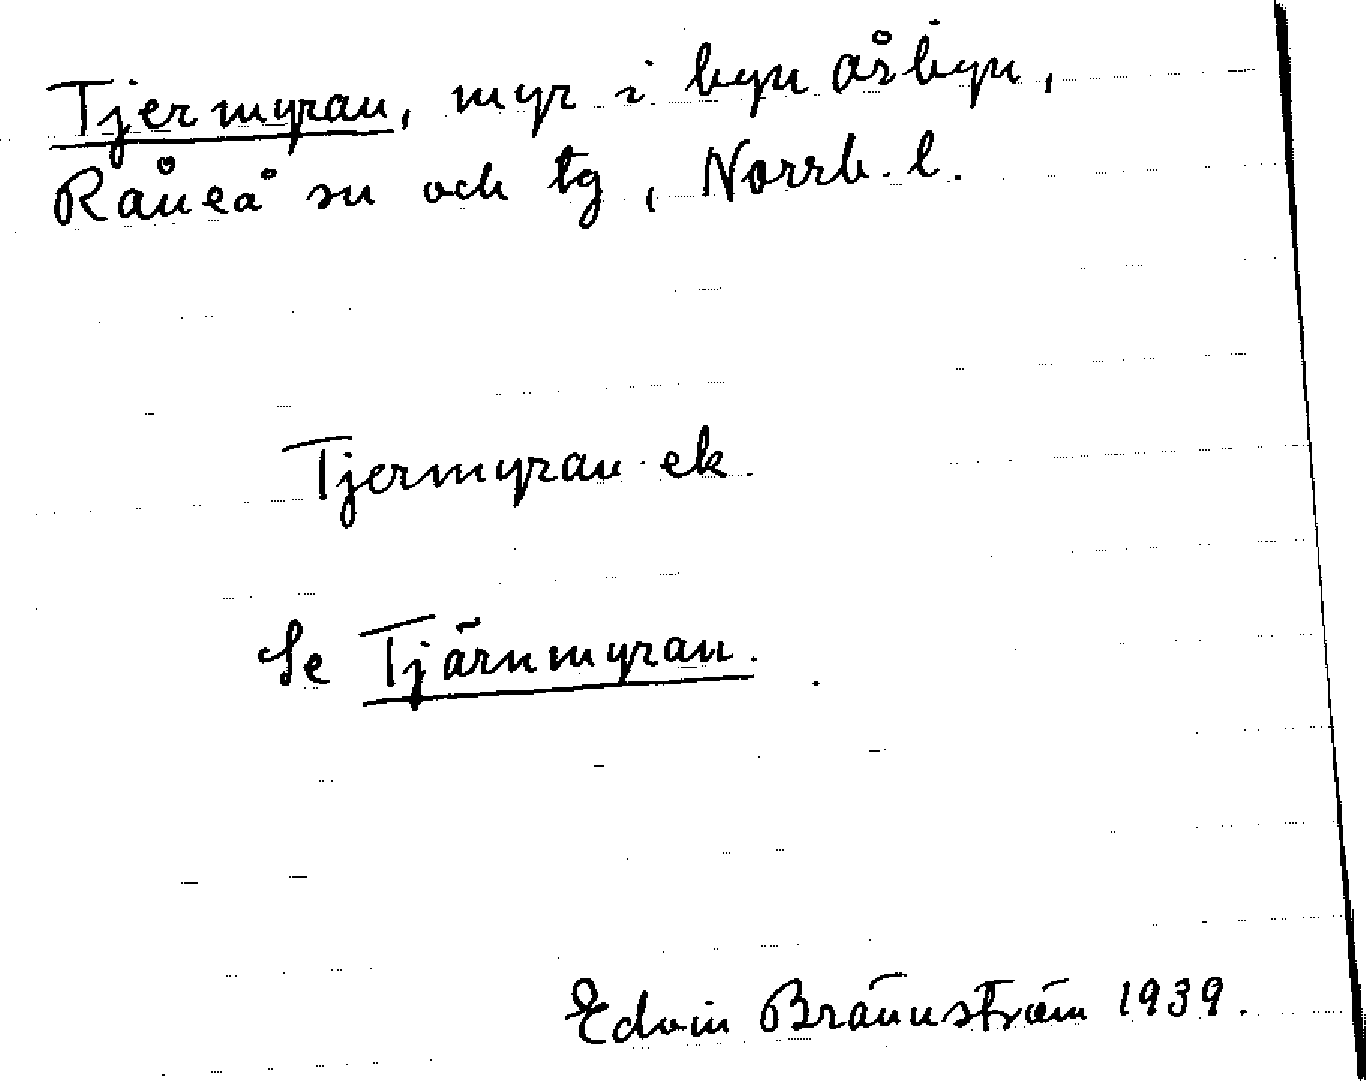 Tjermyran, myr i byn Årbyn,
Råneå sn och tg, Norrb. l.
Tjermyran ek.
Se Tjärnmyran.
Edvin Brännström 1939.